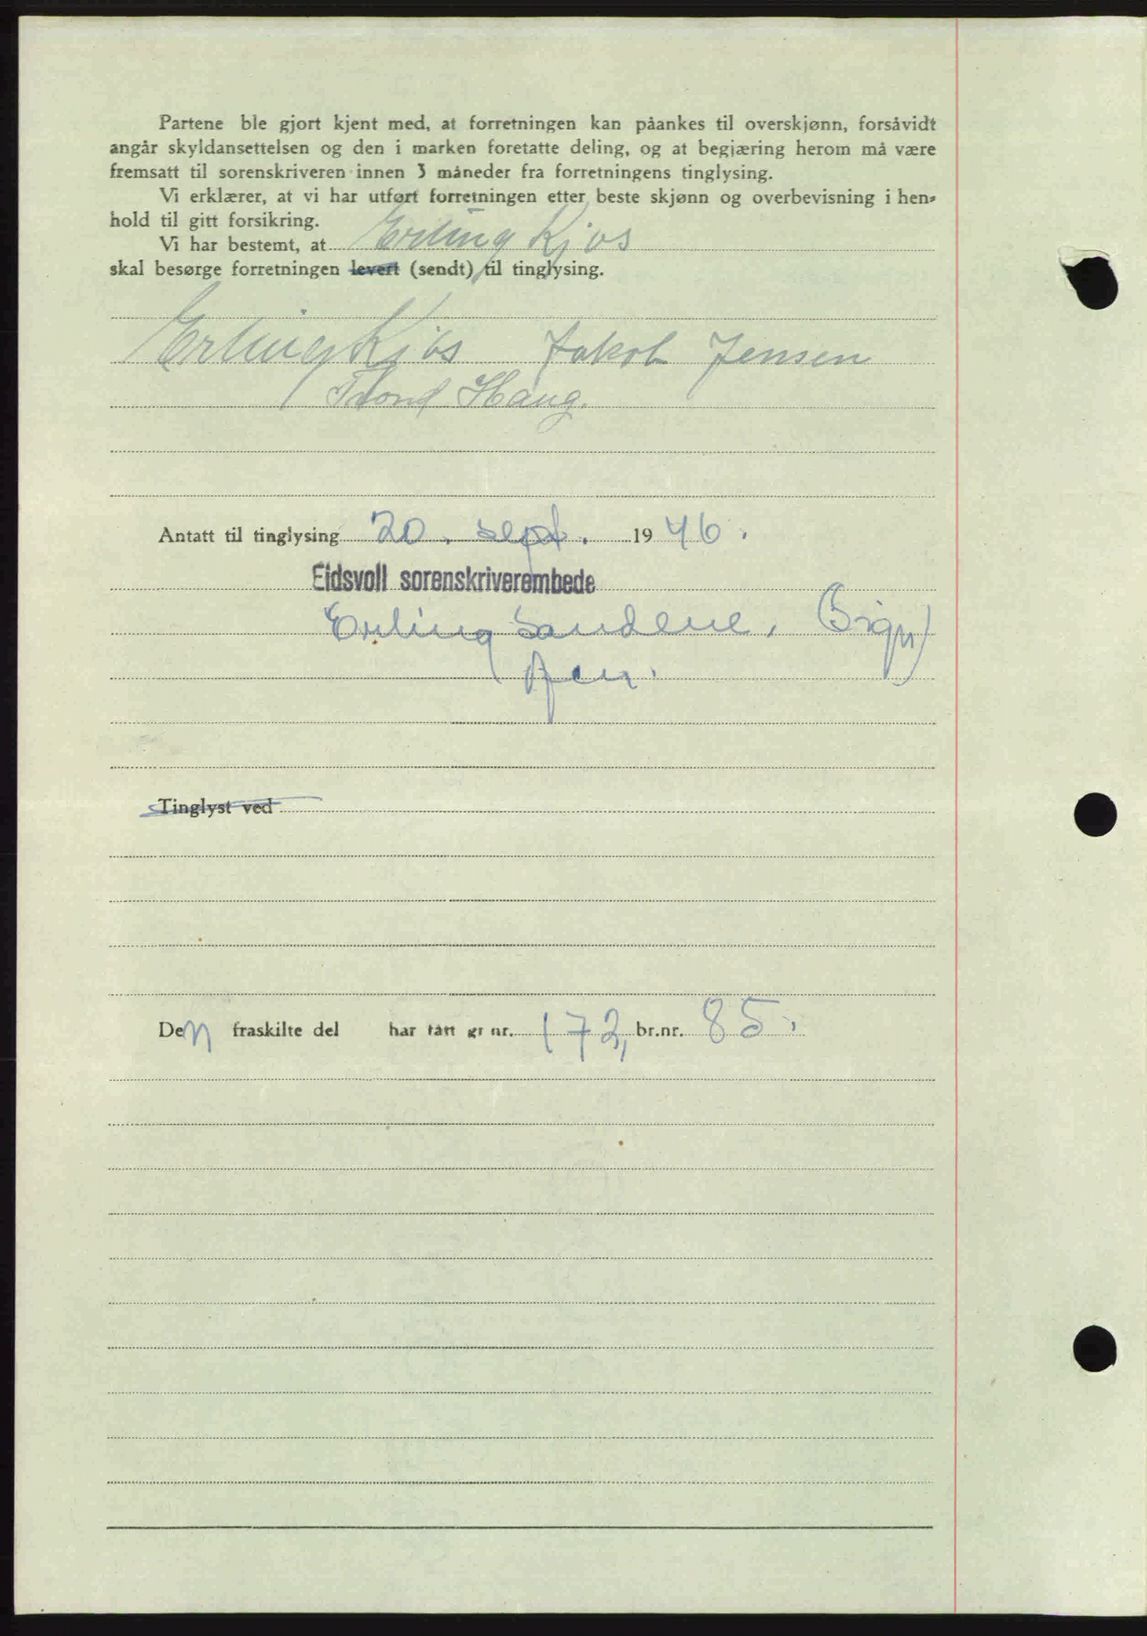 Partene ble gjort kjent med, at forretningen kan påankes til overskjønn, forsåvidt
angår skyldansettelsen og den i marken foretatte deling, og at begjæring herom må være
fremsatt til sorenskriveren innen 3 måneder fra forretningens tinglysing.
Vi erklærer, at vi har utført forretningen etter beste skjønn og overbevisning i hen-
hold til gitt forsikring.
Vi har bestemt, at Erling Kjos
skal besørge forretningen levert (sendt) til tinglysing.
Erling Kjos Jakob Jensen
Trond Haug.
Antatt til tinglysing 20. sept. 1946.
Eidsvoll sorenskriverembede
Erling Sandene. (sign)
Tinglyst ved
Den fraskilte del har fått gr nr. 172, br.nr. 85.